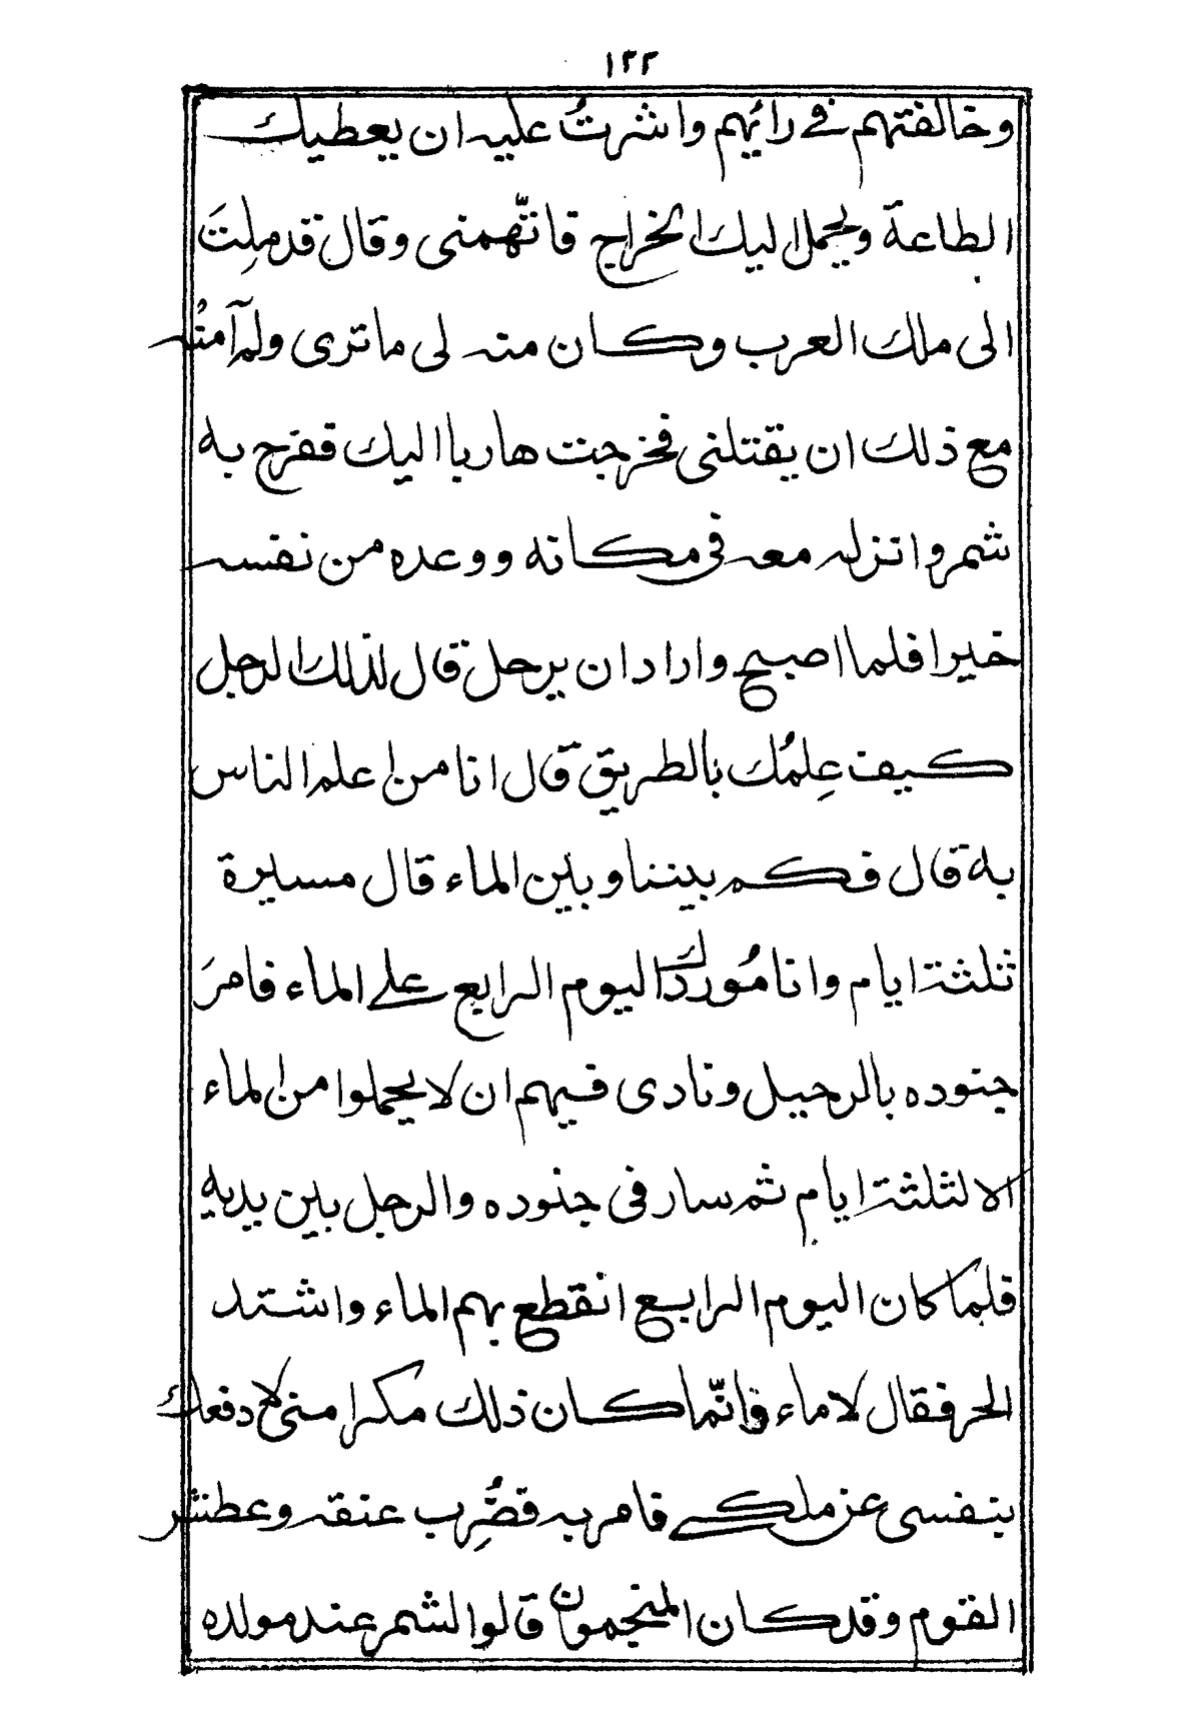 ١٢٢
وخالفتهم في رائهم واشرتُ عليه ان يعطيك
الطاعة ويحمل اليك الخراج فاتّهمنى وقال قد مِلتَ
الى ملك العرب وكان منه لى ما ترى ولم آمنُه
مع ذلك ان يقتلنى فخرجت هاربا اليك ففرح به
شمر وانزله معه فى مكانه ووعده من نفسه
خيرا فلما اصبح واراد ان يرحل قال لذلك الرجل
كيف عِلمُك بالطريق قال انا من اعلم الناس
به قال فكم بيننا وبين الماء قال مسيرة
ثلثة ايام وانا مُوردك اليوم الرابع على الماء فامرَ
جنوده بالرحيل ونادى فيهم ان لا يحملوا من الماء
الا لثلثة ايام ثم سار فى جنوده والرجل بين يديه
فلما كان اليوم الرابع انقطع بهم الماء واشتد
الحر فقال لا ماء وانّما كان ذلك مكرا منى لادفعك
بنفسى عن ملكى فامر به فضُرِب عنقه وعطش
القوم وقد كان المنجمون قالوا لشمر عند مولده